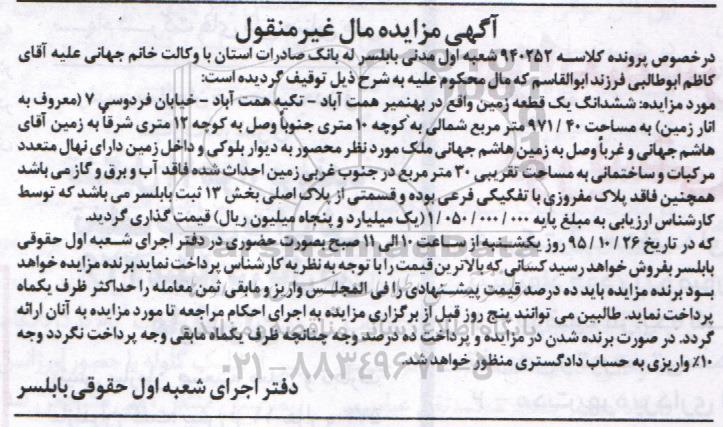 آگهی مزایده مال غیر منقول
در خصوص پرونده کلاسه ۹۴۰۲۵۲ شعبه اول مدنی بابلسر له بانک صادرات استان با وکالت خانم جهانی علیه آقای
کاظم ابوطالبی فرزند ابوالقاسم که مال محکوم علیه به شرح ذیل توقیف گردیده است:
مورد مزایده: ششدانگ یک قطعه زمین واقع در بهنمیر همت آباد - تکیه همت آباد - خیابان فردوسی ۷ (معروف به
انار زمین) به مساحت ۹۷۱/۴۰ متر مربع شمالی به کوچه ۱۰ متری جنوباً وصل به کوچه ۱۲ متری شرقاً به زمین آقای
هاشم جهانی و غرباً وصل به زمین هاشم جهانی ملک مورد نظر محصور به دیوار بلوکی و داخل زمین دارای نهال متعدد
مرکبات و ساختمانی به مساحت تقریبی ۳۰ متر مربع در جنوب غربی زمین احداث شده فاقد آب و برق و گاز می باشد
همچنین فاقد پلاک مفروزی با تفکیکی فرعی بوده و قسمتی از پلاک اصلی بخش ۱۳ ثبت بابلسر می باشد که توسط
کارشناس ارزیابی به مبلغ پایه ۱/۰۵۰/۰۰۰/۰۰۰ (یک میلیارد و پنجاه میلیون ریال) قیمت گذاری گردید.
که در تاریخ ۹۵/۱۰/۲۶ روز یکشنبه از ساعت ۱۰ الی ۱۱ صبح بصورت حضوری در دفتر اجرای شعبه اول حقوقی
بابلسر بفروش خواهد رسید کسانی که بالاترین قیمت را با توجه به نظریه کارشناس پرداخت نماید برنده مزایده خواهد
بود برنده مزایده باید ده درصد قیمت پیشنهادی را فی المجلس واریز و مابقی ثمن معامله را حداکثر ظرف یکماه
پرداخت نماید. طالبین می توانند پنج روز قبل از برگزاری مزایده به اجرای احکام مراجعه تا مورد مزایده به آنان ارائه
گردد. در صورت برنده شدن در مزایده و پرداخت ده درصد وجه چنانچه ظرف یکماه مابقی وجه پرداخت نگردد وجه
۱۰٪ واریزی به حساب دادگستری منظور خواهد شد.
دفتر اجرای شعبه اول حقوقی بابلسر
ParsNamadData
۰۲۱-۸۸۳۴۹۶۷۰-۵